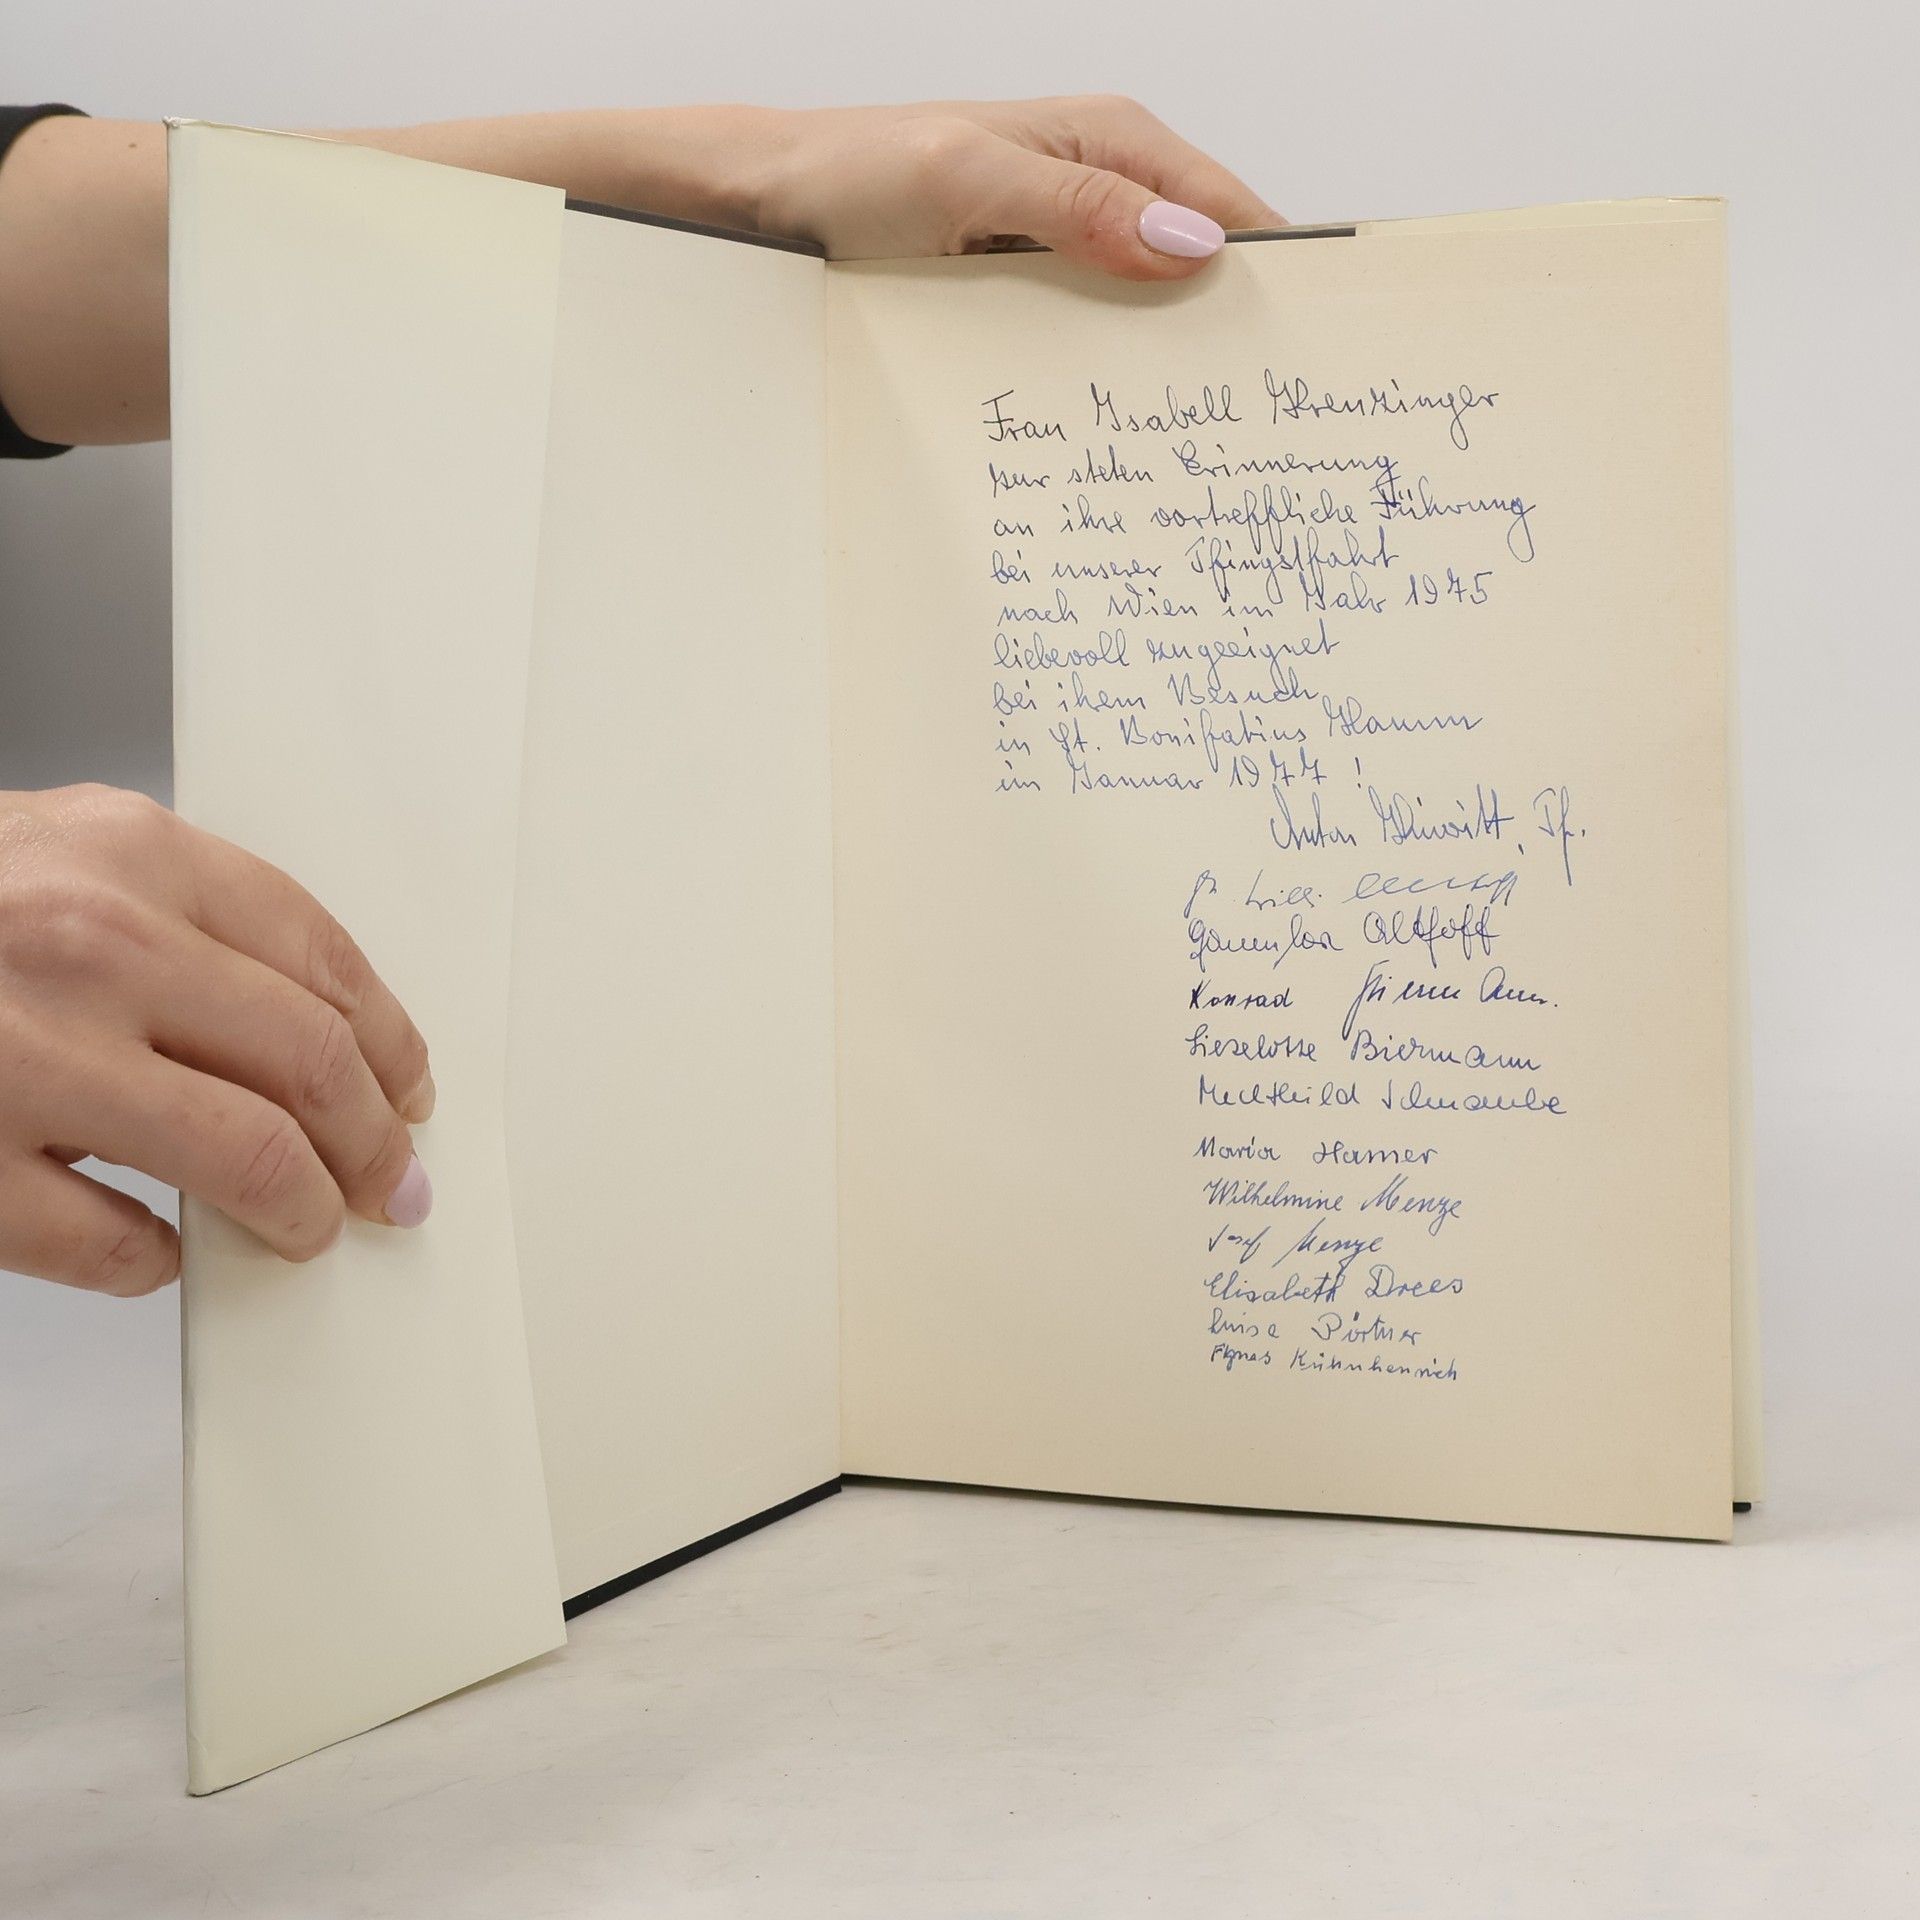 Frau Isabell Krenzinger
zur steten Erinnerung
an ihre vortreffliche Führung
bei unserer Pfingstfahrt
nach Wien im Jahr 1975
liebevoll zugeeignet
bei ihrem Besuch
in St. Bonifatius Hamm
im Januar 1977!
Anton Pf.
Althoff
Konrad
Lieselotte Biermann
Mechthild Schwambe
Maria Hamer
Wilhelmine Menze
Josef Menze
Elisabeth Drees
Luise Pörtner
Agnes Kühnhenrich